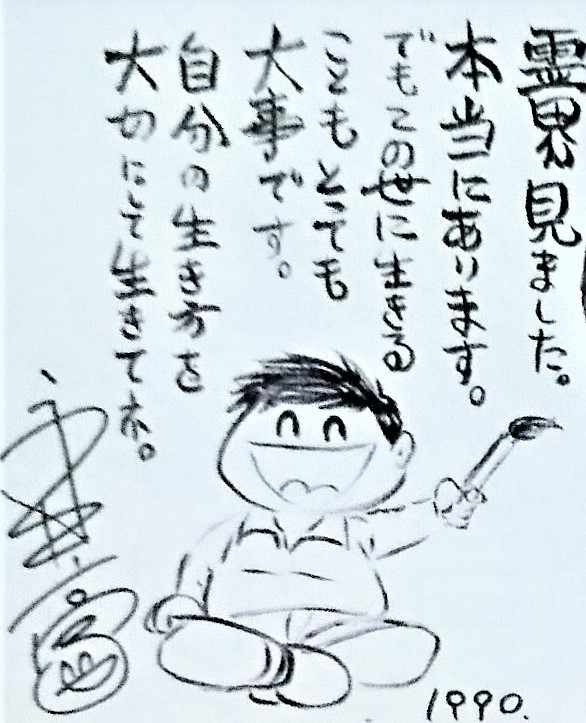 霊界見ました。
本当にあります。
でもこの世に生きる
こともとても
大事です。
自分の生き方を
大切にして生きてネ。
1990.